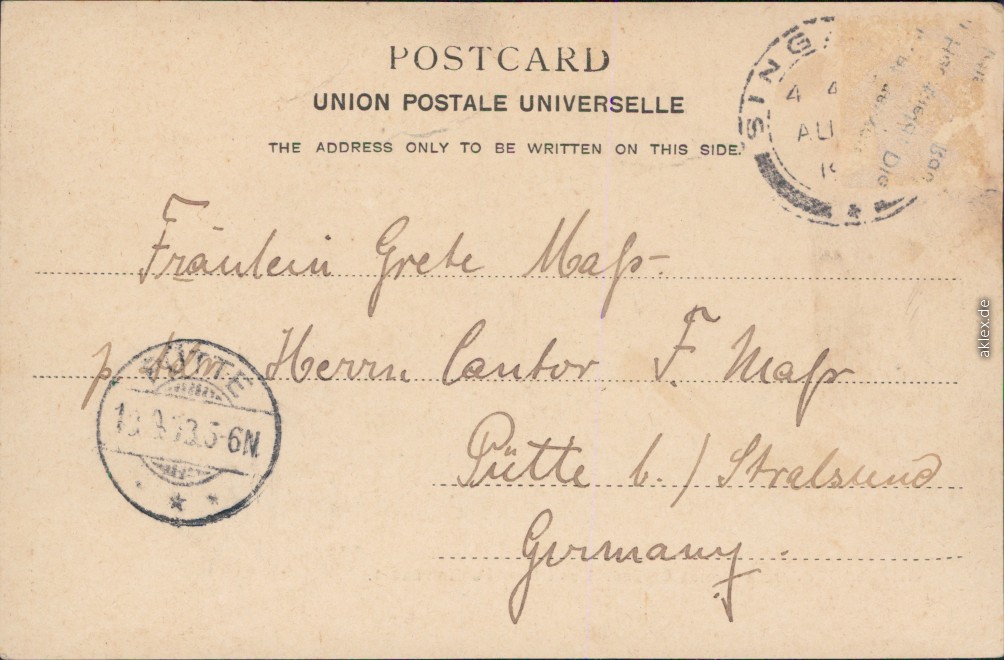 POSTCARD
UNION POSTALE UNIVERSELLE
THE ADDRESS ONLY TO BE WRITTEN ON THIS SIDE.
SING
4
AU
19
Fräulein Grete Maß.
p. Adr. Herrn Cantor F. Maß
Pütte b./Stralsund
Germany.
PÜTTE
5-6N.
aklex.de